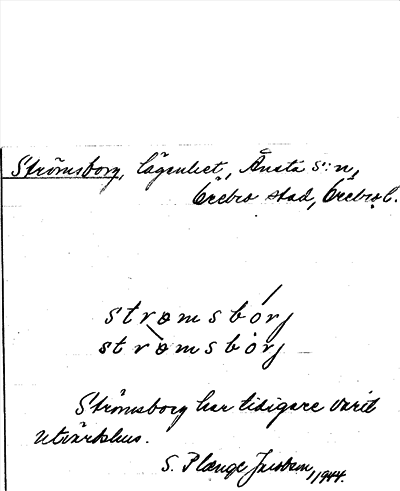 Strömsborg, lägenhet, Ånsta s:n,
Örebro stad, Örebro l.
strømsbórj
strø̀msbȯrj
Strömsborg har tidigare varit
utvärdshus.
S. Plænge Jacobson, 1944.